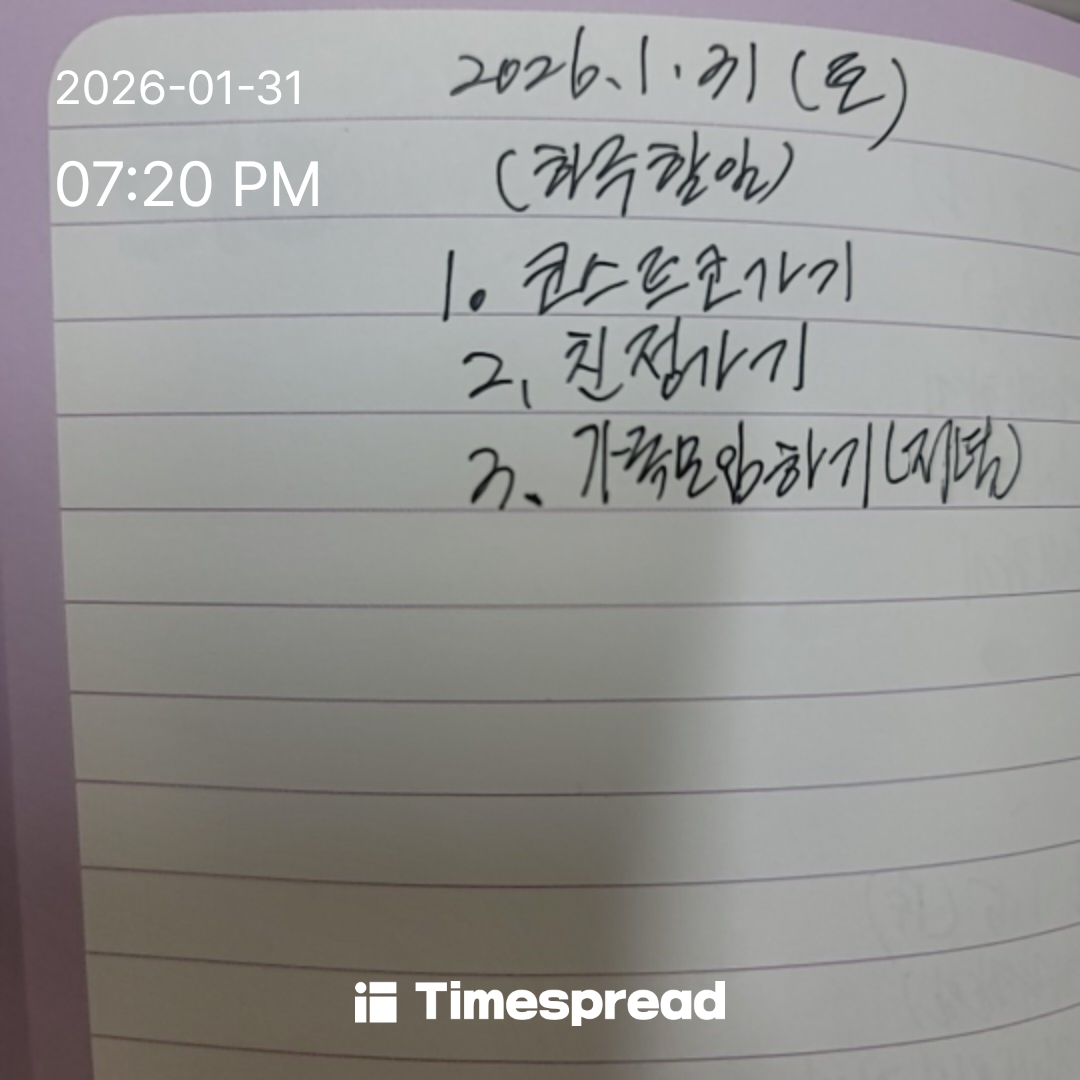 2026-01-31
07:20 PM
2026. 1. 31 (토)
(하루할일)
1. 코스트코가기
2. 친정가기
3. 가족모임하기(저녁)
Timespread